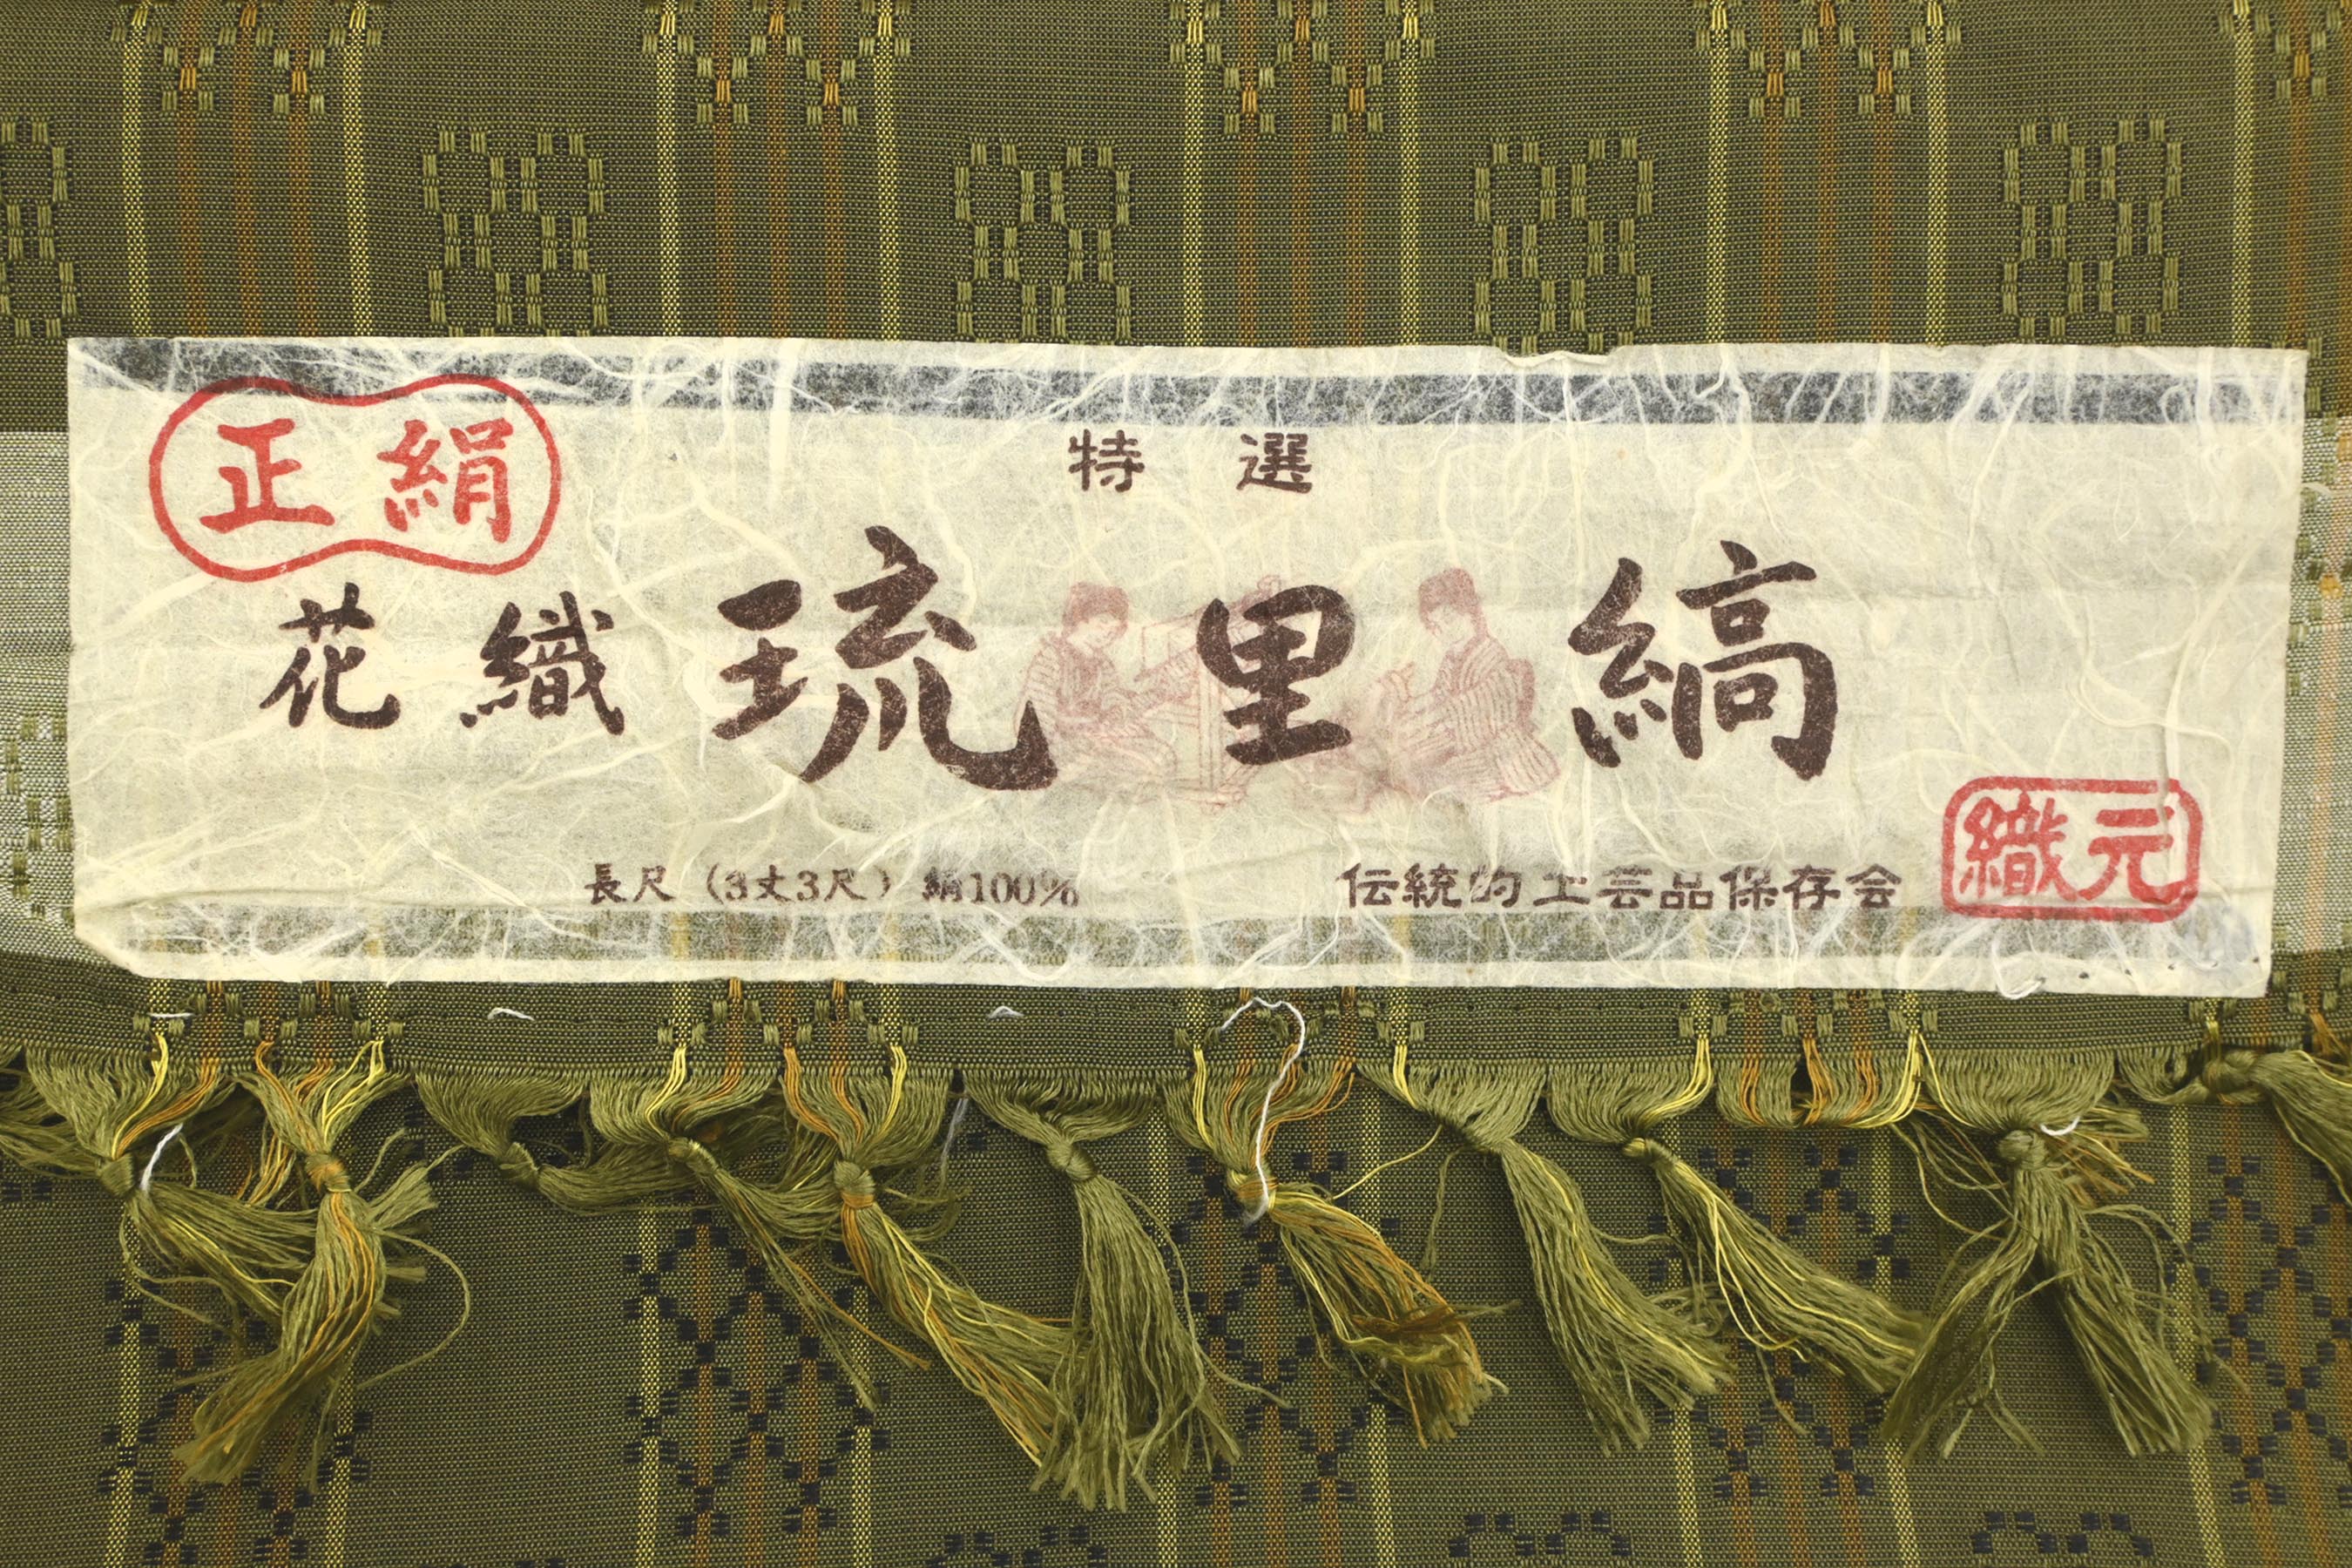 正絹
特選
花織 琉里縞
長尺（3丈3尺）絹100%
伝統的工芸品保存会
織元